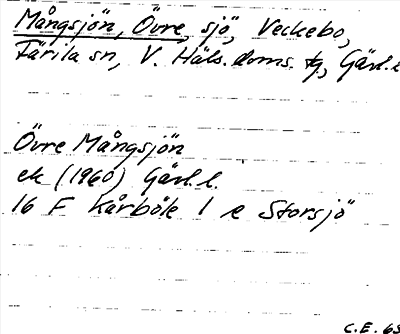 Mångsjön, Övre, sjö, Veckebo,
Färila sn, V. Häls. doms. tg, Gävl. l
Övre Mångsjön
ek (1960) Gävl. l.
16 F Kårböle 1 e Storsjö
C.E. 65